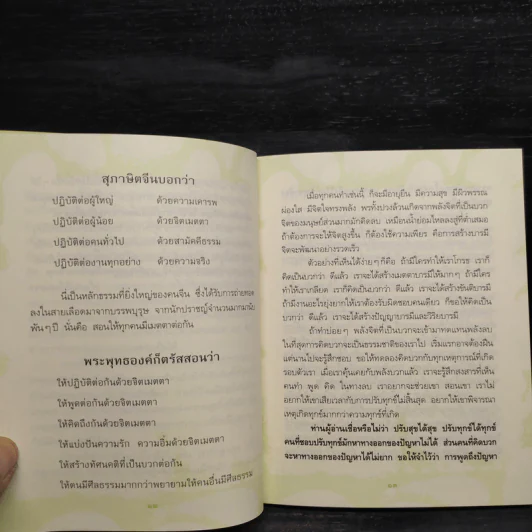 สุภาษิตจีนบอกว่า
ปฏิบัติต่อผู้ใหญ่ ด้วยความเคารพ
ปฏิบัติต่อผู้น้อย ด้วยจิตเมตตา
ปฏิบัติต่อคนทั่วไป ด้วยสามัคคีธรรม
ปฏิบัติต่องานทุกอย่าง ด้วยความจริง
นี่เป็นหลักธรรมที่ยิ่งใหญ่ของคนจีน ซึ่งได้รับการถ่ายทอด
ลงในสายเลือดมาจากบรรพบุรุษ จากนักปราชญ์จำนวนมากมานับ
พันๆปี นั่นคือ สอนให้ทุกคนมีเมตตาต่อกัน
พระพุทธองค์ก็ตรัสสอนว่า
ให้ปฏิบัติต่อกันด้วยจิตเมตตา
ให้พูดต่อกันด้วยจิตเมตตา
ให้คิดถึงกันด้วยจิตเมตตา
ให้แบ่งปันความรัก ความอิ่มด้วยจิตเมตตา
ให้สร้างทัศนคติที่เป็นบวกต่อกัน
ให้ตนมีศีลธรรมมากกว่าพยายามให้คนอื่นมีศีลธรรม
เมื่อทุกคนทำเช่นนี้ ก็จะมีอายุยืน มีความสุข มีผิวพรรณ
ผ่องใส มีจิตใจทรงพลัง พรทั้งปวงล้วนเกิดจากพลังจิตที่เป็นบวก
จิตของมนุษย์ส่วนมากมักคิดลบ เหมือนน้ำย่อมไหลลงสู่ที่ต่ำเสมอ
ถ้าต้องการจะให้จิตสูงขึ้น ก็ต้องใช้ความเพียร คือการสร้างบารมี
จิตจะพัฒนาอย่างรวดเร็ว
ตัวอย่างที่เห็นได้ง่ายๆ ก็คือ ถ้ามีใครทำให้เราโกรธ เราก็
คิดเป็นบวกว่า ดีแล้ว เราจะได้สร้างเมตตาบารมีให้มากๆ ถ้ามีใคร
ทำให้เราเกลียด เราก็คิดเป็นบวกว่า ดีแล้ว เราจะได้สร้างขันติบารมี
ถ้ามีงานอะไรยุ่งยากให้เราต้องรับผิดชอบคนเดียว ก็ขอให้คิดเป็น
บวกว่า ดีแล้ว เราจะได้สร้างปัญญาบารมีและวิริยบารมี
ถ้าทำบ่อยๆ พลังจิตที่เป็นบวกจะเข้ามาทดแทนพลังลบ
ในที่สุดการคิดบวกจะเป็นธรรมชาติของเราไป เริ่มแรกอาจต้องฝืน
แต่นานไปจะรู้สึกชอบ ขอให้ทดลองคิดบวกกับทุกเหตุการณ์ที่เกิด
รอบตัวเรา เมื่อเราคุ้นเคยกับพลังบวกแล้ว เราจะรู้สึกสงสารที่เห็น
คนทำ พูด คิด ในทางลบ เราอยากจะช่วยเขา สอนเขา เราไม่
อยากให้เขาเสียเวลากับการปรับทุกข์ไม่สิ้นสุด อยากให้เขาพิจารณา
เหตุเกิดทุกข์มากกว่าความทุกข์ที่เกิด
ท่านผู้อ่านเชื่อหรือไม่ว่า ปรับสุขได้สุข ปรับทุกข์ได้ทุกข์
คนที่ชอบปรับทุกข์มักหาทางออกของปัญหาไม่ได้ ส่วนคนที่คิดบวก
จะหาทางออกของปัญหาได้ไม่ยาก ขอให้จำไว้ว่า การพูดถึงปัญหา